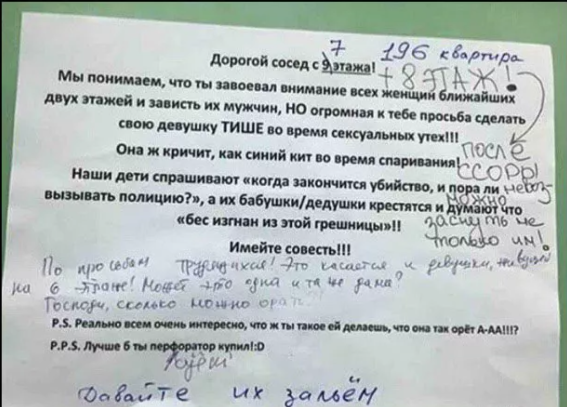 7 196 квартира
Дорогой сосед с 9 этажа!
+ 8 ЭТАЖ!
Мы понимаем, что ты завоевал внимание всех женщин ближайших
двух этажей и зависть их мужчин, НО огромная к тебе просьба сделать
свою девушку ТИШЕ во время сексуальных утех!!!
Она ж кричит, как синий кит во время спаривания!
ПОСЛЕ
ССОРЫ
Наши дети спрашивают «когда закончится убийство, и пора ли
вызывать полицию?», а их бабушки/дедушки крестятся и думают что
«бес изгнан из этой грешницы»!!
невоз
можно
заснуть не
только им!
Имейте совесть!!!
По просьбам трудящихся! Это касается и девушки, живущей
на 6 этаже! Может это одна и та же дама?
Господи, сколько можно орать
P.S. Реально всем очень интересно, что ж ты такое ей делаешь, что она так орёт А-АА!!!?
P.P.S. Лучше б ты перфоратор купил!:D
Давайте их зальём